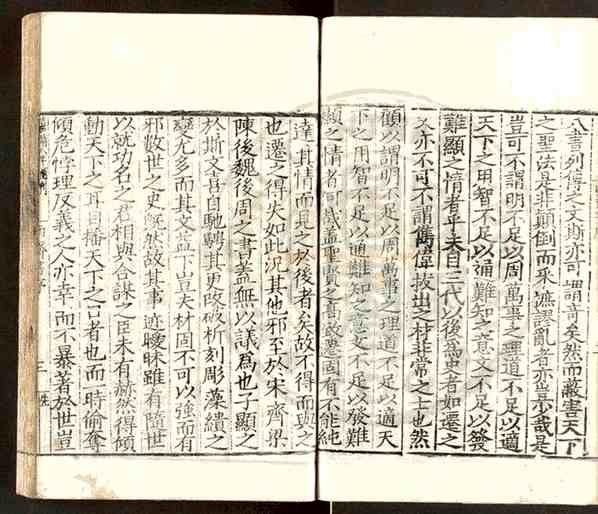 八書列傳之文斯亦可謂奇矣然而蔽害天下
之聖法是非顛倒而采摭謬亂者亦豈少哉是
豈可不謂明不足以周萬事之理道不足以適
天下之用智不足以通難知之意文不足以發
難顯之情者乎夫自三代以後爲史者如遷之
文亦不可不謂雋偉拔出之材非常之士也然
顧以謂明不足以周萬事之理道不足以適天
下之用智不足以通難知之意文不足以發難
顯之情者何哉蓋聖賢之高致遷固有不能純
達其情而見之於後者矣故不得而與之
也遷之得失如此況其他邪至於宋齊梁
陳後魏後周之書蓋無以議爲也子顯之
於斯文喜自馳騁其更改破析刻彫藻繢之
變尤多而其文益下豈夫材固不可以強而有
邪數世之史旣然故其事迹曖昧雖有隨世
以就功名之君相與合謀之臣未有赫然得傾
動天下之耳目播天下之口者也而一時偷奪
傾危悖理反義之人亦幸而不暴著於世豈
三